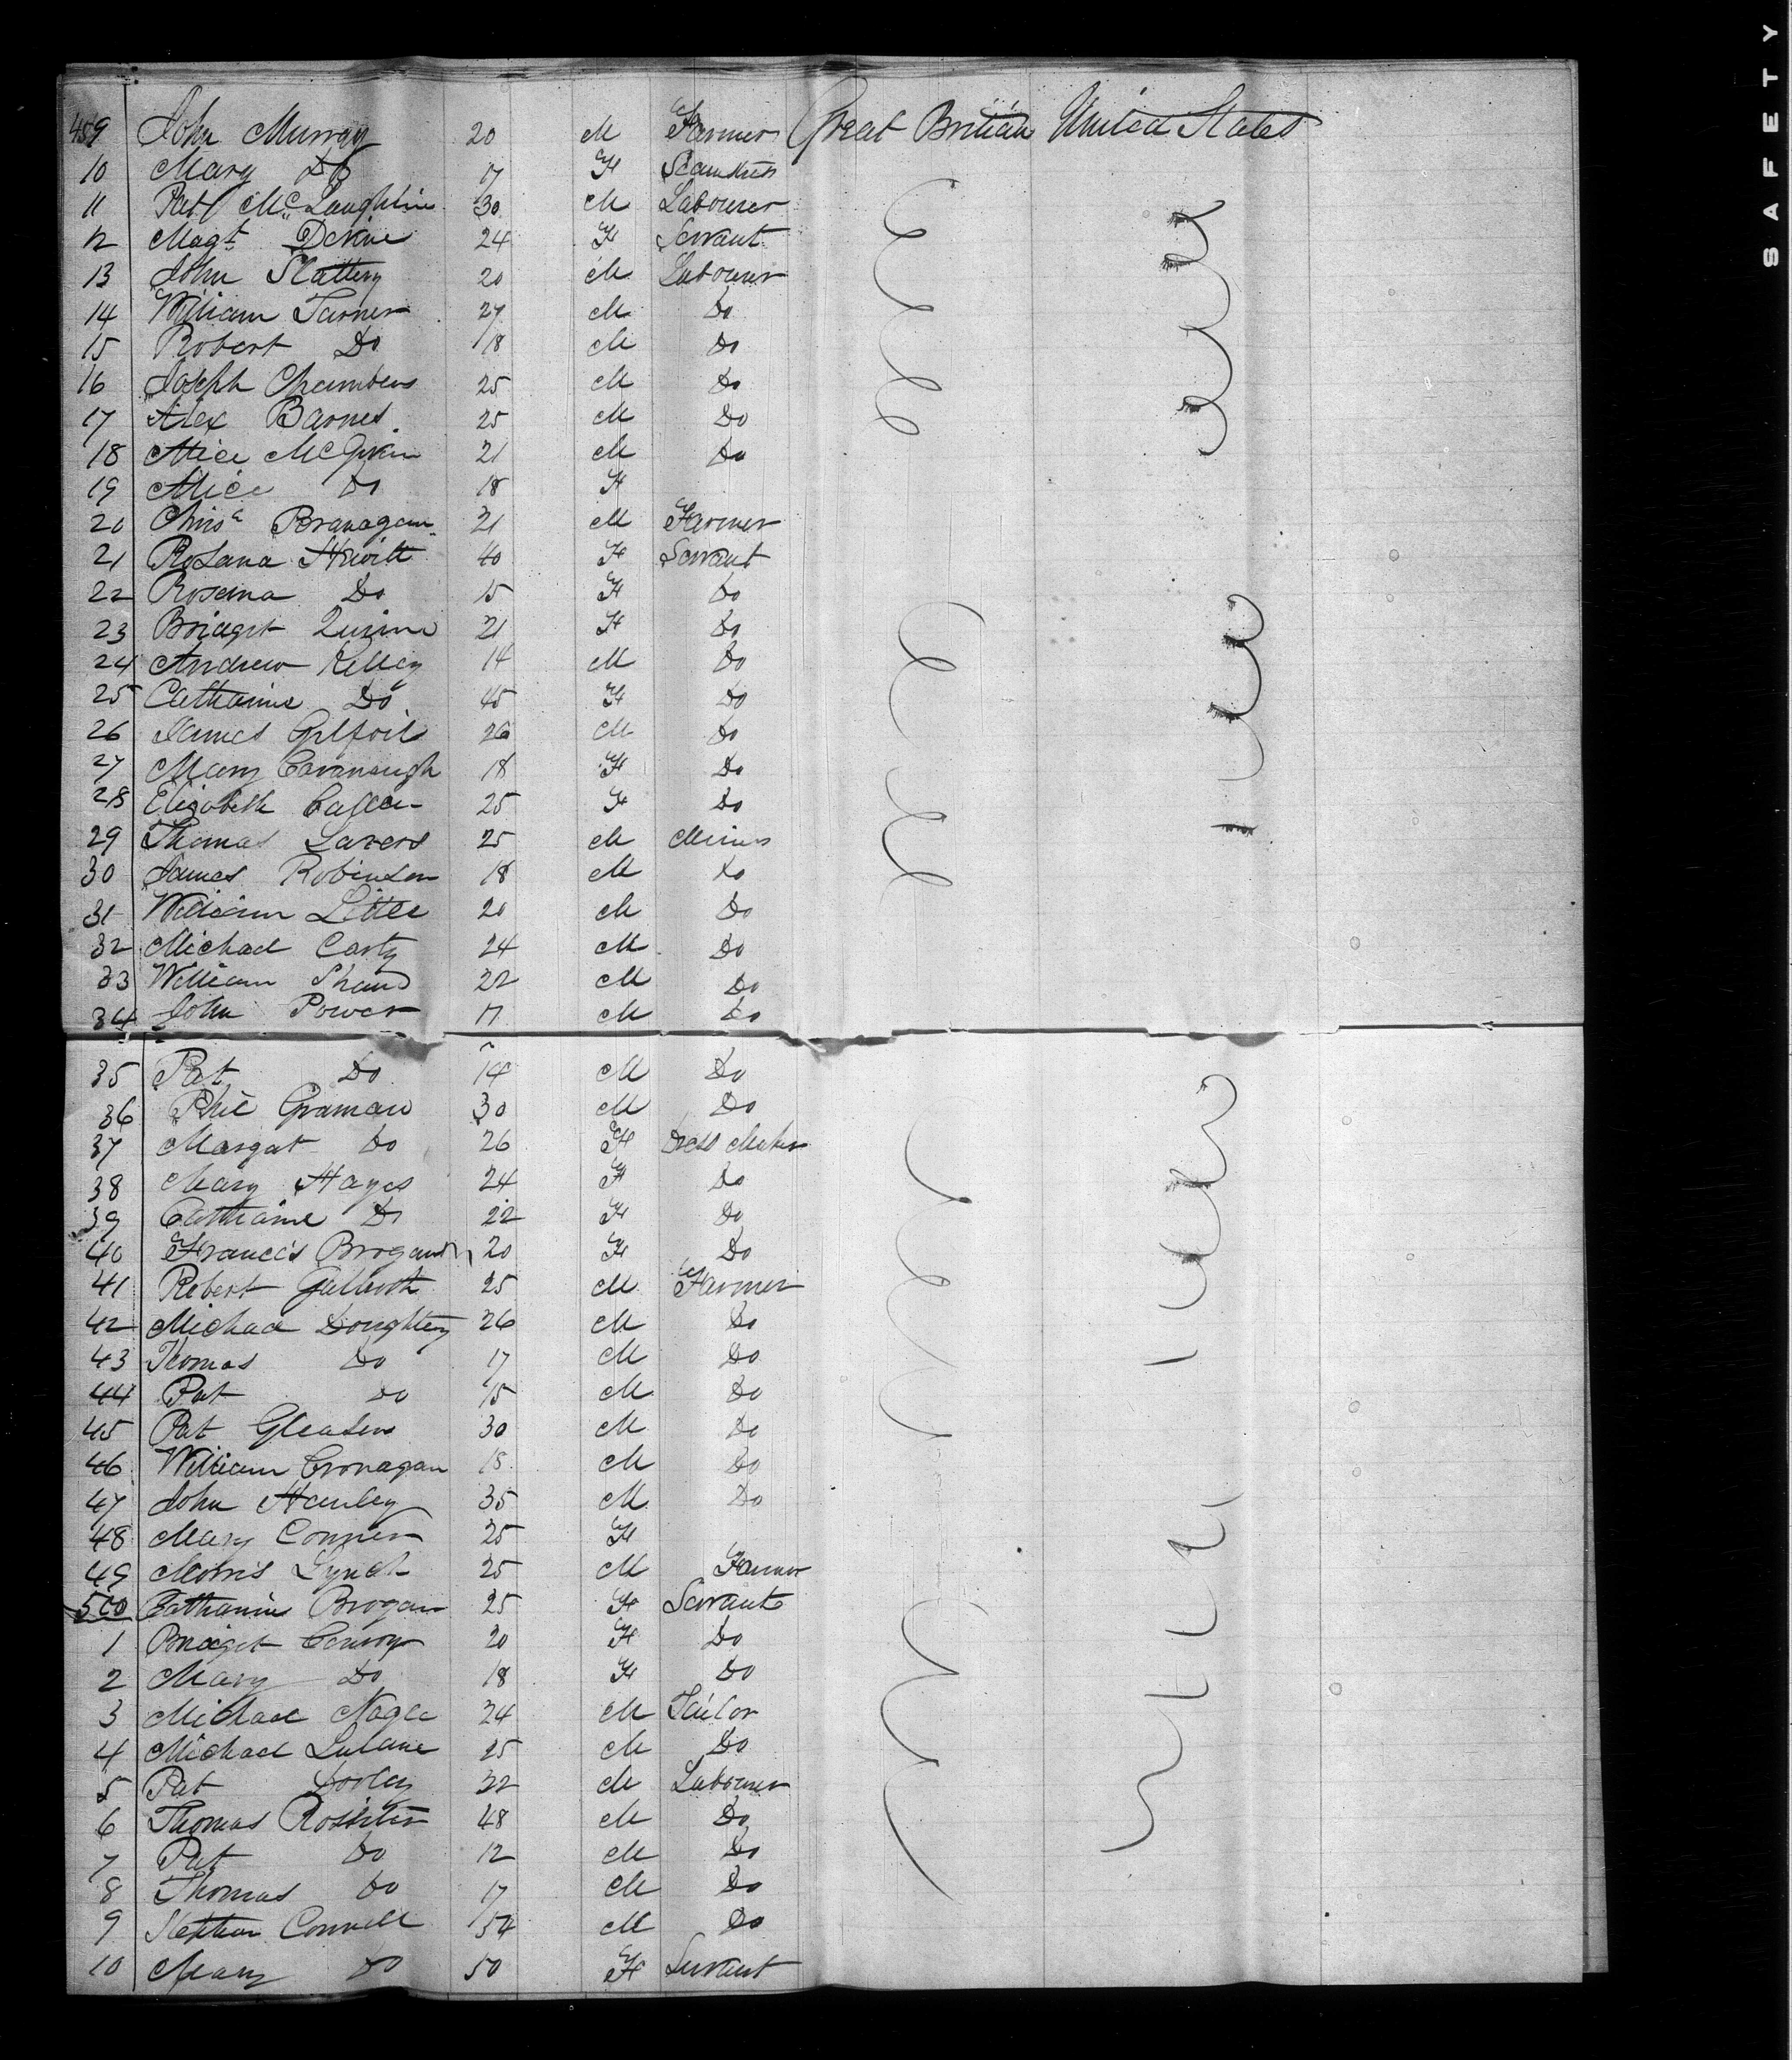 SAFETY
459 John Murray 20 M Farmer Great Britian United States
10 Mary Do 17 F
11 Pat McLaughlin 30 M Labourer
12 Magt Devine 24 F Servant
13 John Slattery 20 M Labourer
14 William Turner 27 M Do
15 Robert Do 18 M Do
16 Joseph Chambers 25 M Do
17 Alex Barnes 25 M Do
18 Alice 21 M Do
19 Alice Do 18 F
20 Chrisr Branagan 21 M Farmer
21 Rosana Hewitt 40 F Servant
22 Rosanna Do 15 F Do
23 Bridget Quinn 21 F Do
24 Andrew Kelley 14 M Do
25 Catharine Do 45 F Do
26 James Gilfoil 26 M Do
27 Mary Cavanaugh 18 F Do
28 Elizabeth 25 F Do
29 Thomas Lavers 25 M Miner
30 James Robinson 18 M Do
31 William Little 20 M Do
32 Michael Carty 24 M Do
33 William Shaw 22 M Do
34 John Power 17 M Do
35 Pat Do 14 M Do
36 Phil 30 M Do
37 Margat Do 26 F Dress Maker
38 Mary Hayes 24 F Do
39 Catharine Do 22 F Do
40 Francis Brogan 20 F Do
41 Robert 25 M Farmer
42 Michael Doughtey 26 M Do
43 Thomas Do 17 M Do
44 Pat Do 15 M Do
45 Pat Gleason 30 M Do
46 William Cronagan 18 M Do
47 John Hanley 35 M Do
48 Mary Conner 25 F
49 Morris Lynch 25 M Farmer
500 Catharine Brogan 25 F Servant
1 Bridget Conroy 20 F Do
2 Mary Do 18 F Do
3 Michael Nagle 24 M Tailor
4 Michael 25 M Do
5 Pat Dooley 32 M Labourer
6 Thomas Rossiter 48 M Do
7 Pat Do 12 M Do
8 Thomas Do 17 M Do
9 Stephen Connell 54 M Do
10 Mary Do 50 F Servant